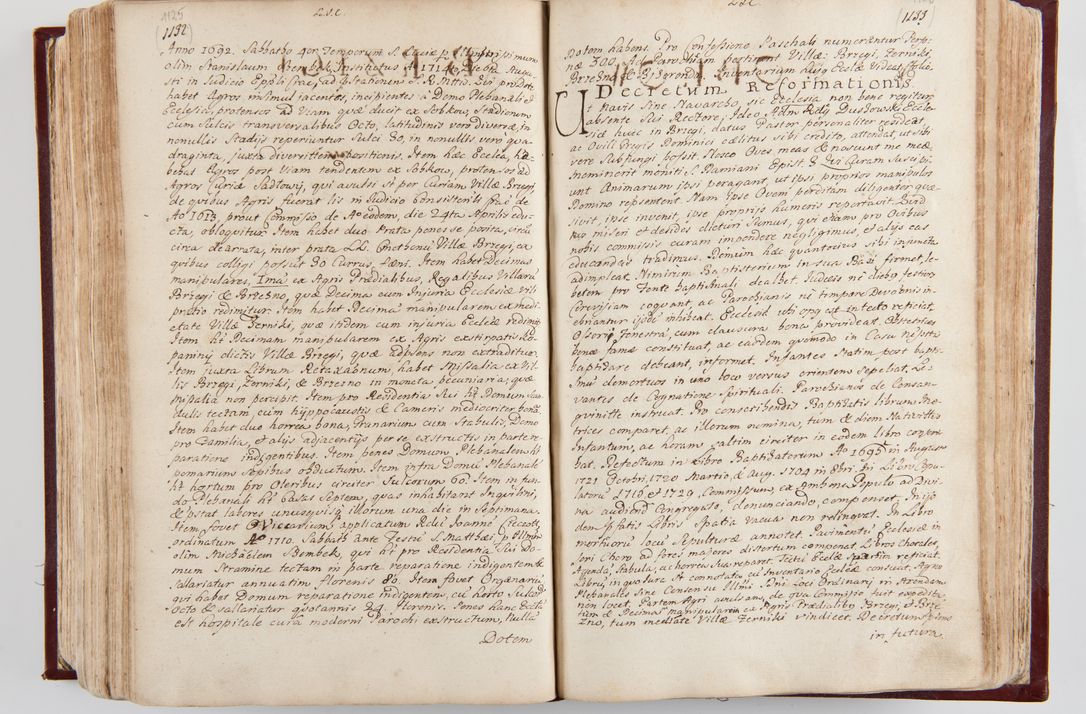 1125
(1132)
L.S.C.
Anno 1692. Sabbatho 4or Temporum S. Luciæ p Illustrissimum
olim Stanislaum Bembek, Institutus Ao 1711 die 21 Augu-
sti in Judicio Epplī Crac, ad Staõnem S. R. Mttis Qui pro Dote
habet Agros insimul jacentes, incipientes à Domo Plebanali et
Ecclesia, protensos ad Viam quæ ducit ex Sobkow, Stadionum
cum Sulcis transversalibus Octo, latitudinis vero diversæ, in
nonullis Stadijs reperiuntur Sulci 30, in nonullis vero qua-
draginta, juxta diversittem positionis. Item hæc Ecclēa, ha-
bebat Agros post Viam tendentem ex Sobkow, protensos ad
Agros Curiæ Sadlowij, qui avulsi st per Curiam Villæ Brzegi,
de quibus Agris fuerat lis in Judicio Consistorili de
Ao 1613, prout Commissio de Ao eodem, die 24ta Aprilis edu-
cta, obloquitur. Item habet duo Prata penes se posita, circu
circa exarata, inter prata LL. Cmethonū Villæ Brzegi, ex
quibus colligi possut 30 Currus, Fæni. Item habet Decimas
manipulares, Ima ex Agris Prædialibus, Regalibus Villarū
Brzegi & Brzezno, quæ Decima cum Injuria Ecclesiæ vili
pretio redimitur. Item habet Decimā manipularem ex medi-
etate Villæ Zerniki, quæ itidem cum injuria Ecclēæ redimit
Item ht Decimam manipularem ex Agris extirpatis Ko-
paniny dictis Villæ Brzegi, quæ adhuc non extraditur.
Item juxta Librum Retaxaõnum, habet Missalia ex Vil-
lis Brzegi, Zerniki, & Brzezno in moneta pecuniaria; quæ
Missalia non percipit. Item pro Residentia Sui ht Domum Scan-
dulis tectam, cum hypocaustis & Cameris mediocriter bonā.
Item habet duo horrea bona, Granarium cum Stabulis, Domo
pro Familia, et alijs adjacentijs per se exstructis in parte re-
paratione indigentibus. Item penes Domum Plebanalem ht
pomarium Sepibus obductum. Item infra Domū Plebanalē
ht hortum pro Oleribus circiter Sulcorum 60. Item in fun-
do Plebanali ht Casas Septem, quas inhabitant Inquilini,
& pstat labores unusquisq illorum una die in Septimana.
Item fovet Vicarium, applicatum Rdui Joanne Ceccott
ordinatum Ao 1710. Sabbatō ante Festū S. Matthæi, p Illmū
olim Michaëlem Szembek, qui ht pro Residentia Sui do-
mum Stramine tectam in parte reparatione indigentem &
sallariatur annuatim florenis 80. Item fovet Organariū
qui habet Domum reparatione indigentem, cū horto Sulcor
Octo & sallariatur quotannis 24 florenis. Penes hanc Ecclā
est hospitale curâ moderni Parochi exstructum, nulla
Dotem
(1133)
L.S.C.
Dotem habens. Pro Confessione Paschali numerantur Perso-
næ 300. Ad Parochiam pertinent Villæ: Brzegi, Zerniki,
Brzezno & Bizoręda. Inventarium alijq Ecclæ Videat.
Decretum Reformationis
Ut Navis Sine Navarcho, sic Ecclesia non bene regitur
absente Sui Rectore; Ideo Adm Rdq Duszowski Eccle-
siæ huic in Brzegi, datus Pastor personaliter resideat,
ac Ovili Gregis Dominici cælitus sibi credito, attendat, ut sibi
vere Subjungi possit. Nosco Oves meas & noscunt me meæ,
meminerit moniti S. Damiani Epist. 3. Qui Curam Suscipi-
unt Animarum ipsi peragant, ut ipsi proprios manipulos
Domino repsentent. Nam ipse Ovem perditam diligenter quæ-
sivit, ipse invenit, ipse proprijs humeris reportavit. Quid
nos miseri et desides dicturi Sumus, qui etiam pro Ovibus
nobis commissis curam impendere negligimus, et alijs eas
educandas tradimus. Demum hæc quantocius sibi injuncta
adimpleat. Nimirum Baptisterium in sua Bāsi firmet, le-
betem pro Fonte baptismali dealbet. Judæos ne diebo festivis
Cerevisiam coquant, ac Parochianis ni tempore Devotionis in-
ebriantur ijsde inhibeat. Ecclesiā ubi opq est in tecto reficiat,
Ossorij Fenestrā, cum clausura bona provideat. Obstetrices
bonæ famæ constituat, ac easdem quomodo in Casu necessitt
baptizare debeant, informet. Infantes Statim post baptis-
mū demortuos in uno loco versus orientem sepeliat, Le-
vantes de Cognatione Spirituali. Parochianos de Consan-
gvinitte instruat. Pro conscribendis Baptizatis librum Ma-
trices comparet, ac illorum nomina, tum & diem Nativittis
Infantum, ac horam saltim circiter in eodem libro conscri-
bat. Defectum in Libro Baptizatorum Ao 1695 in Augusto
1721 Octobri, 1720 Martio, & Aug. 1704 in 8bri. In Libro Copu-
latorū 1719, & 1729, Commissum, ex Ambona Populo ad Divi-
na audiend Congregato, denunciando compenset. In ijs-
dem Iplatis Libris Spatia vacua non relinquat. In Libro
mortuorū locū Sepulturæ annotet. Pavimentū Ecclesiæ in
ferri Choro ad fores majores disiectum componat, Libros Chorales,
Agenda, Stabula, ac horrea Sua reparet. Tectū Ecclæ Sarta reficiat
Libru, in quo Iura St connotata cū Inventario Ecclæ consuat. Agros
Plebanales Sine Consensu Illmi, Dni Loci Ordinarij in Arendam
non locet, Partem Agri avulsam, de qua Commissio fuit expedita
tum & Decimas manipularem ex Agris Prædialibo Brzegi, & Brze-
zno, tum mediate Villæ Zerniki vindicet. Decretum primo
in futura